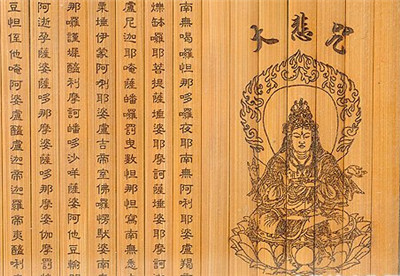 大悲咒
南無喝囉怛那哆囉夜耶南無阿利耶婆盧羯
爍缽囉耶菩提薩埵婆耶摩訶薩埵婆耶摩訶
盧尼迦耶唵薩皤囉罰曳數怛那怛寫南無悉
栗埵伊蒙阿利耶婆盧吉帝室佛囉愣馱婆南
那囉謹墀醯利摩訶皤哆沙咩薩婆阿他豆輸
阿逝孕薩婆薩哆那摩婆薩哆那摩婆伽摩罰
豆怛侄他唵阿婆盧醯盧迦帝迦羅帝夷醯利